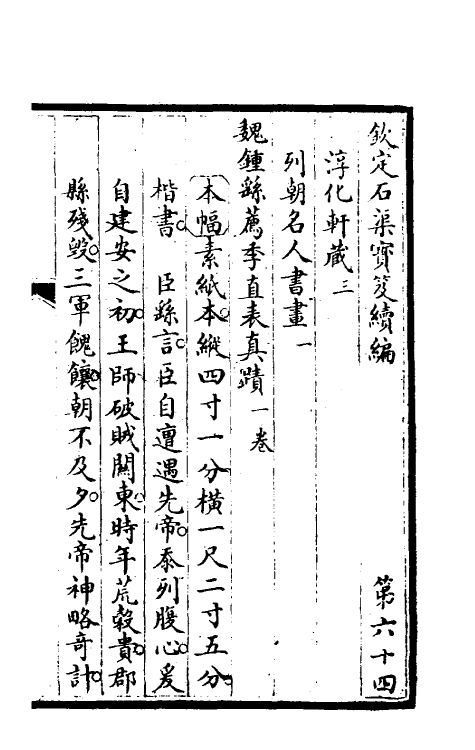 欽定石渠寶笈續編　第六十四
淳化軒藏三
列朝名人書畫一
魏鍾繇薦季直表真蹟一卷
本幅素紙本縱四寸一分橫一尺二寸五分
楷書　臣繇言臣自遭遇先帝忝列腹心爰
自建安之初王師破賊關東時年荒穀貴郡
縣殘毀三軍餽饟朝不及夕先帝神略奇計